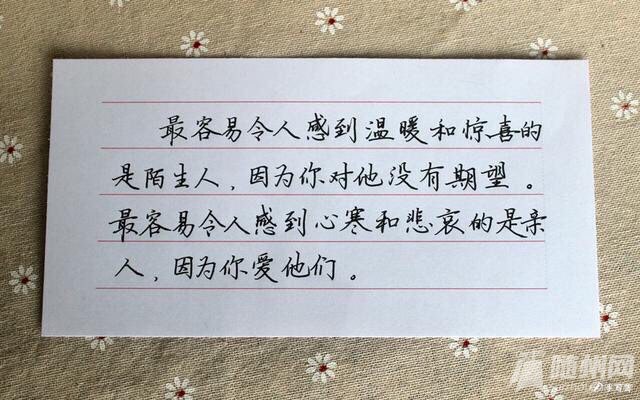 最容易令人感到温暖和惊喜的
是陌生人，因为你对他没有期望。
最容易令人感到心寒和悲哀的是亲
人，因为你爱他们。
随州网